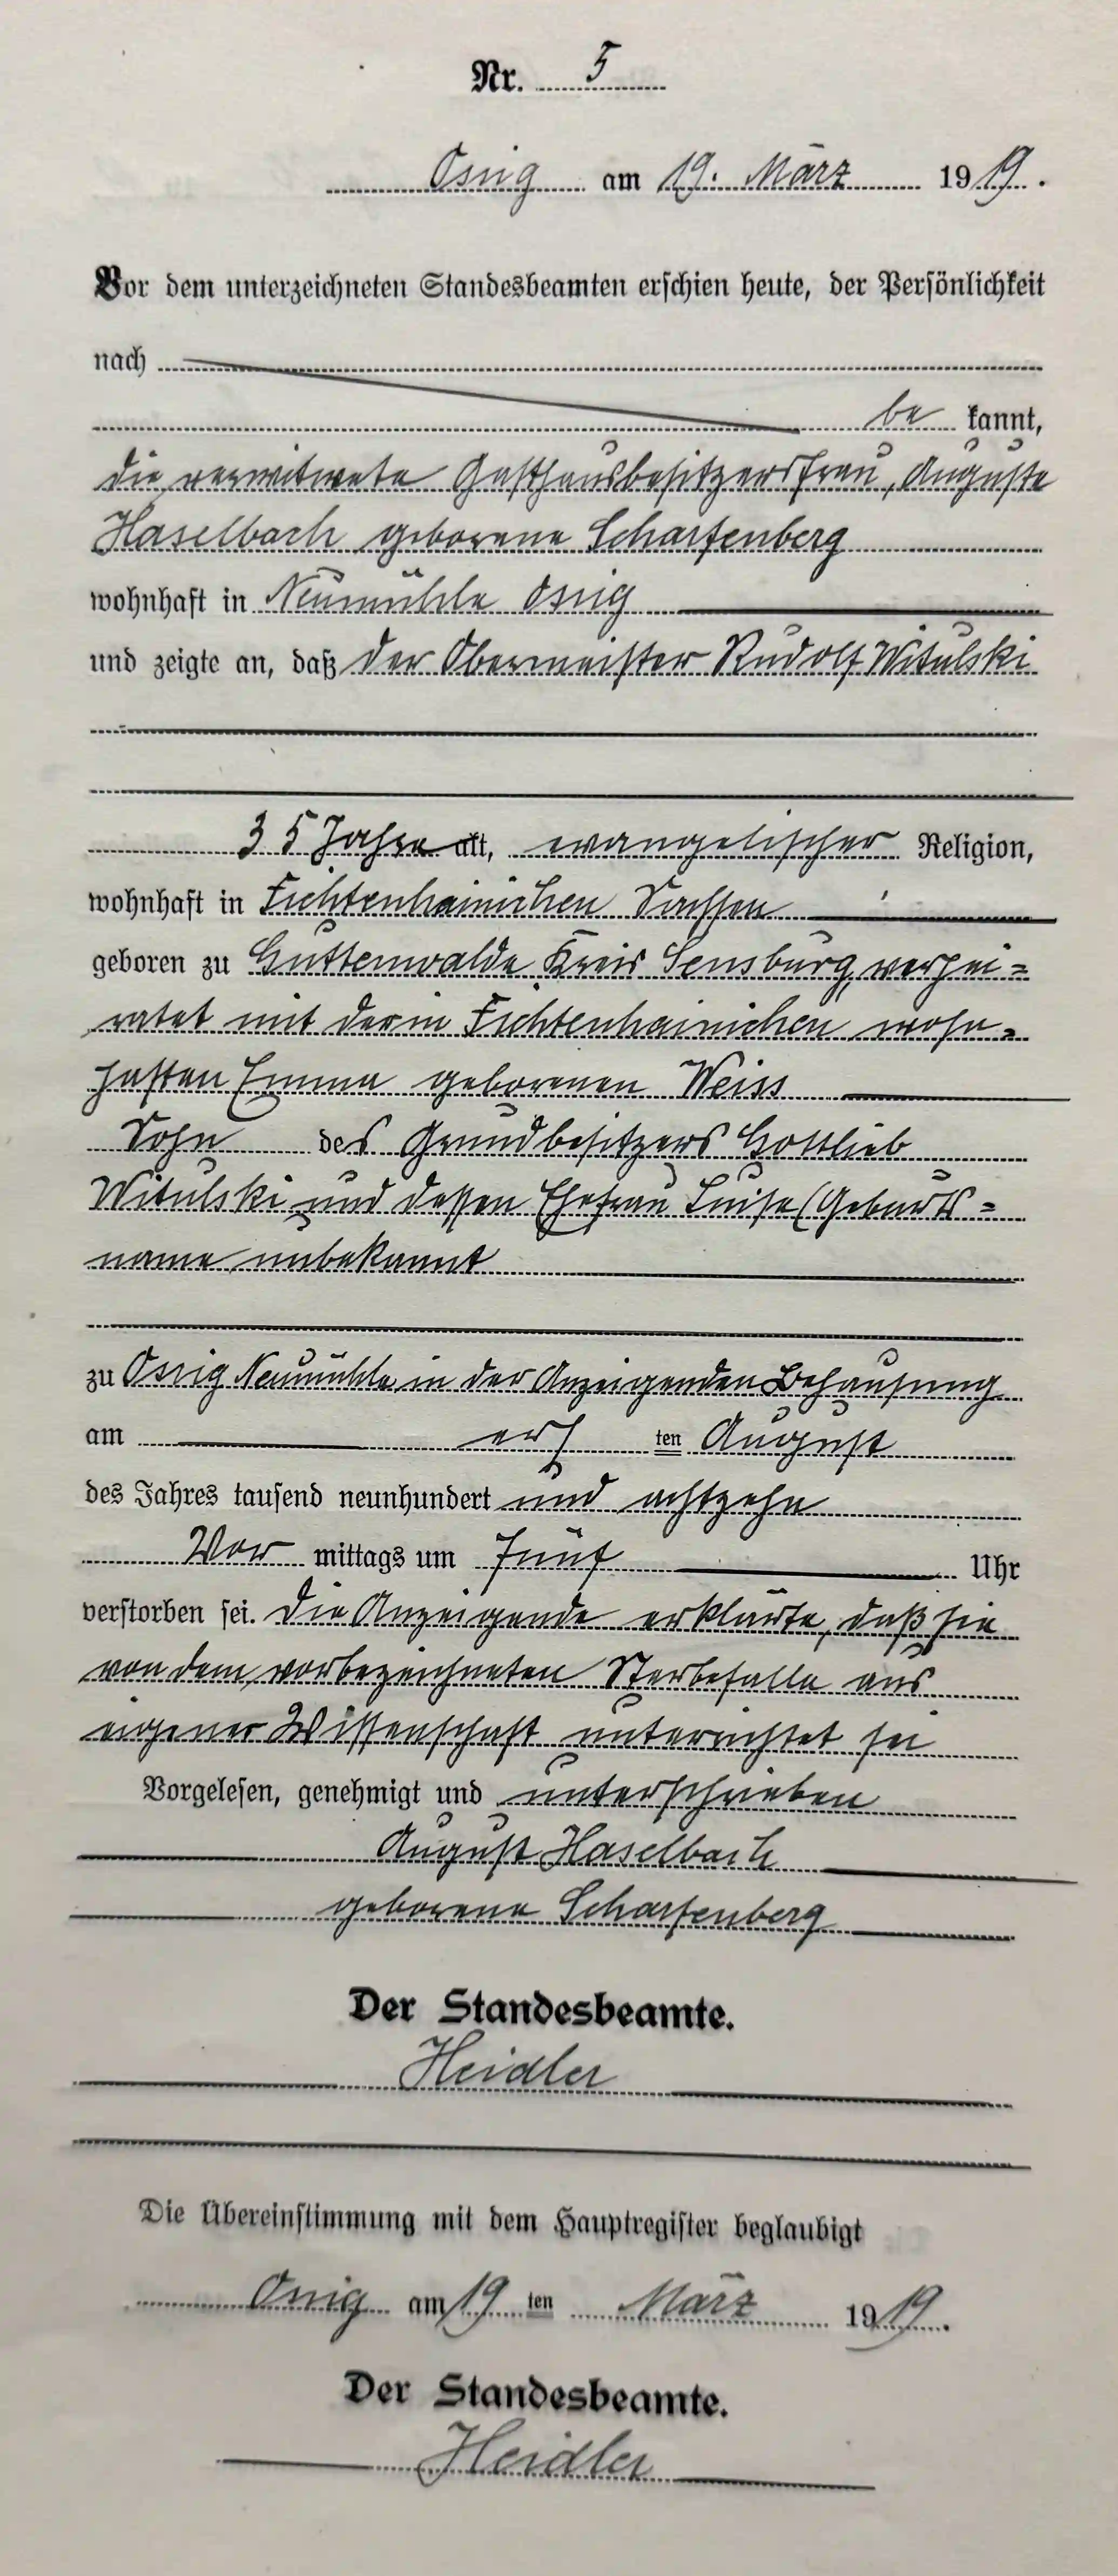 Nr. 5
Ossig am 19. März 1919.
Vor dem unterzeichneten Standesbeamten erschien heute, der Persönlichkeit
nach
be kannt,
die verwitwete Gasthausbesitzersfrau, Auguste
Haselbach geborene Scharfenberg
wohnhaft in Neumühle Ossig
und zeigte an, daß der Obermeister Rudolf Witulski
35 Jahre alt, evangelischer Religion,
wohnhaft in Fichtenhainichen Sachsen
geboren zu Guttenwalde Kreis Sensburg, verhei=
ratet mit der in Fichtenhainichen wohn=
haften Emma geborenen Weiss
Sohn des Grundbesitzers Gottlieb
Witulski und dessen Ehefrau Luise (Geburts=
name unbekannt
zu Ossig Neumühle in der Anzeigenden Behausung
am ers ten August
des Jahres tausend neunhundert und achtzehn
Vor mittags um Fünf Uhr
verstorben sei. Die Anzeigende erklärte, daß sie
von dem vorbezeichneten Sterbefalle aus
eigener Wissenschaft unterrichtet sei
Vorgelesen, genehmigt und unterschrieben
August Haselbach
geborene Scharfenberg
Der Standesbeamte.
Heidler
Die Übereinstimmung mit dem Hauptregister beglaubigt
Ossig am 19 ten März 1919.
Der Standesbeamte.
Heidler